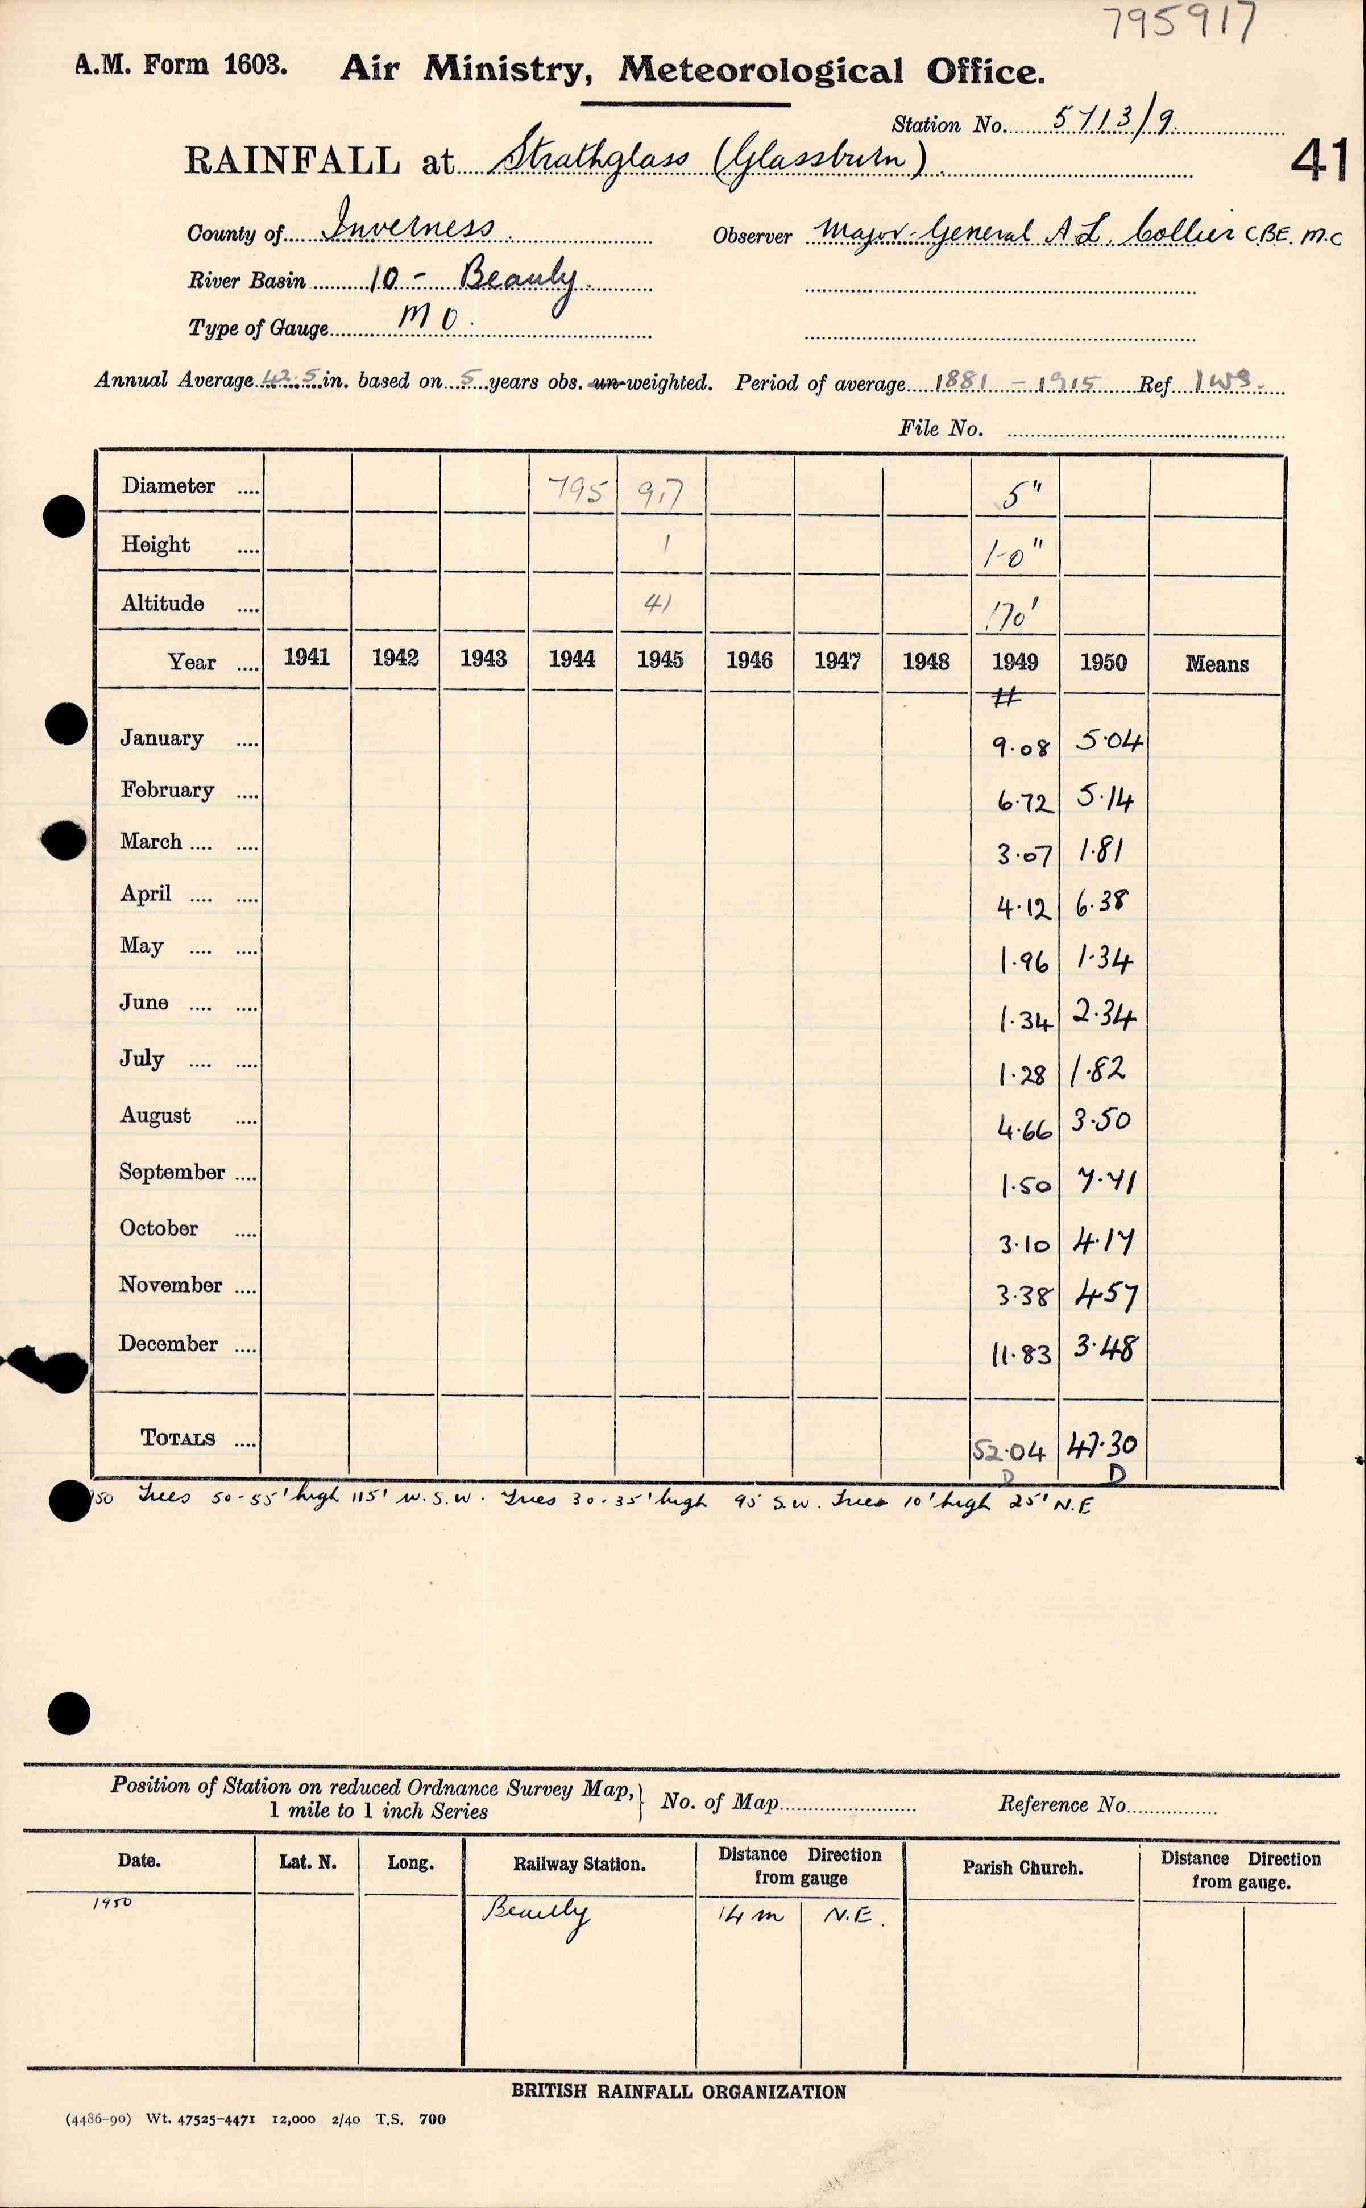 795917
A.M. Form 1603. Air Ministry, Meteorological Office.
Station No. 5713/9
41
RAINFALL at Strathglass (Glassburn)
County of Inverness. Observer Major-General A L. Collier C.B.E. M.C
River Basin 10 - Beauly.
Type of Gauge MO.
Annual Average 42.5 in. based on 5 years obs. un-weighted. Period of average 1881 - 1915 Ref. IWS.
File No.
Diameter .... 795 917 5"
Height .... 1 1-0"
Altitude .... 41 170'
Year .... 1941 1942 1943 1944 1945 1946 1947 1948 1949 1950 Means
January .... 9.08 5.04
February .... 6.72 5.14
March .... .... 3.07 1.81
April .... .... 4.12 6.38
May .... .... 1.96 1.34
June .... .... 1.34 2.34
July .... .... 1.28 1.82
August .... 4.66 3.50
September .... 1.50 7.71
October .... 3.10 4.17
November .... 3.38 4.57
December .... 11.83 3.48
TOTALS .... 52.04 47.30
D D
50 Trees 50-55' high 115' W.S.W. Trees 30-35' high 95' S.W. Trees 10' high 25' N.E
Position of Station on reduced Ordnance Survey Map,
1 mile to 1 inch Series
No. of Map Reference No.
Date. Lat. N. Long. Railway Station. Distance Direction from gauge Parish Church. Distance Direction from gauge.
1950 Beauly 14 m N.E.
BRITISH RAINFALL ORGANIZATION
(4486-90) Wt. 47525-4471 12,000 2/40 T.S. 700